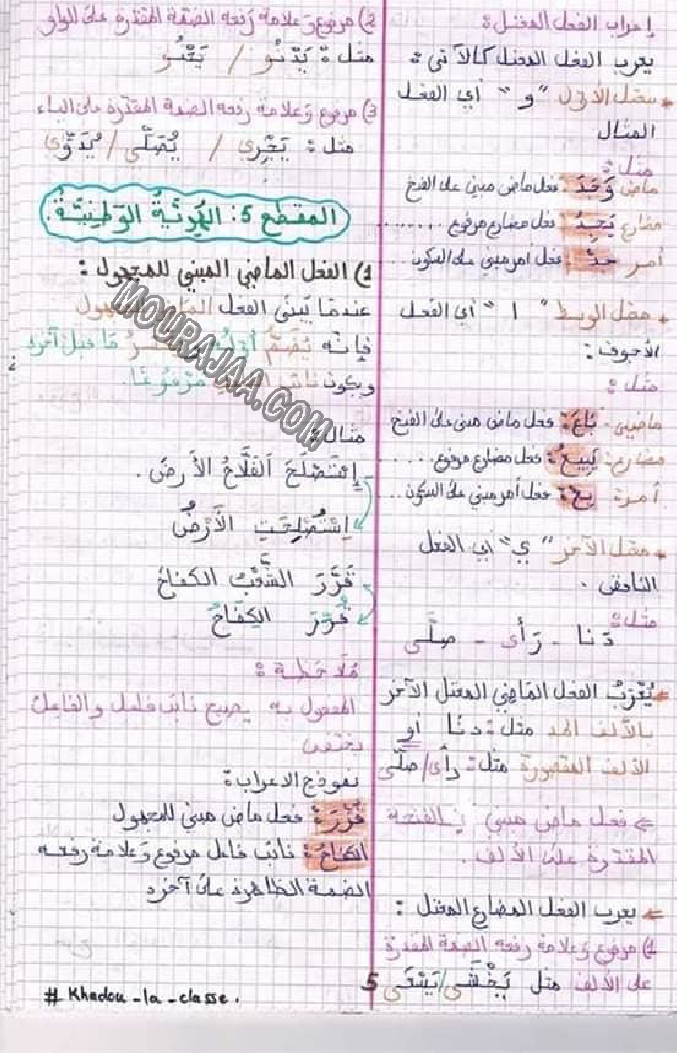 إعراب الفعل المعتل :
يعرب الفعل المعتل كالآتي :
معتل الأول "و" أي الفعل
المثال
مثل :
ماض وَجَدَ : فعل ماض مبني على الفتح
مضارع يَجِدُ : فعل مضارع مرفوع ........
أمر جِدْ : فعل أمر مبني على السكون
معتل الوسط " ا " أي الفعل
الأجوف :
مثل :
ماضي : بَاعَ : فعل ماض مبني على الفتح
مضارع : يَبِيعُ : فعل مضارع مرفوع .....
أمر : بِعْ : فعل أمر مبني على السكون ...
معتل الآخر "ي" أي الفعل
الناقص .
مثل :
دَنَا - رَأَى - صلَّى
يُعْرَبُ الفعل الماضي المعتل الآخر
بالألف المد مثل : دنَا أو
الألف المقصورة مثل : رأى/صلَّى
فعل ماض مبني بالفتحة
المقدرة على الألف .
يعرب الفعل المضارع المعتل :
1) مرفوع وعلامة رفعه الضمة المقدرة
على الألف مثل يَخْشَى/يَسْعَى
5
2) مرفوع وَعلامة رَفعه الضمة المقدرة على الواو
مثل : يَدْنُو / يَعْلُو
3) مرفوع وَعلامة رفعه الضمة المقدرة على الياء
مثل : يَجْرِي / يُصَلِّي / يُدَوِّي
المقطع 5 : الهُوِيَّةُ الوَطَنِيَّةُ.
1) الفعل الماضي المبني للمجهول :
عندمَا يُبنَى الفعل المَاضي للمجهول
فإنَّه يُضَمُّ أوَّلُهُ ويُكْسَرُ مَا قبل آخره
ويكون نائب الفاعل مَرْفُوعًا.
مثال :
إِسْتَصْلَحَ الفَلَّاحُ الأَرضَ .
اِسْتُصْلِحَتِ الأَرْضُ
قَرَّرَ الشَّعْبُ الكفاحَ
قُرِّرَ الكِفَاحُ
مُلَاحَظة :
المفعول به يصبح نائب فاعل والفاعل
يختفي
نموذج الاعراب :
قُرِّرَ : فعل ماض مبني للمجهول
الكفاحُ : نائب فاعل مرفوع وَعلامة رفعه
الضمة الظاهرة على آخره
# Khadou_la_classe.
MOURAJAA.COM